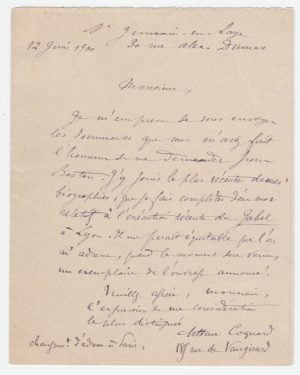 St Germain-en-Laye
12 Juin 1900 30 rue Alex. Dumas
Monsieur,
Je m'empresse de vous envoyer
les documents que vous m'avez fait
l'honneur de me demander pour
Boston. J'y joins la plus récente de mes
biographies, que je fais compléter d'un mot
relatif à l'exécution récente de Jahel
à Lyon. Il me serait agréable que l'on
m'adresse, quand le moment sera venu,
un exemplaire de l'ouvrage annoncé.
Veuillez agréer, monsieur,
l'expression de ma considération
la plus distinguée
Arthur Coquard
changemt d'adresse à Paris = 
rue de Vaugirard